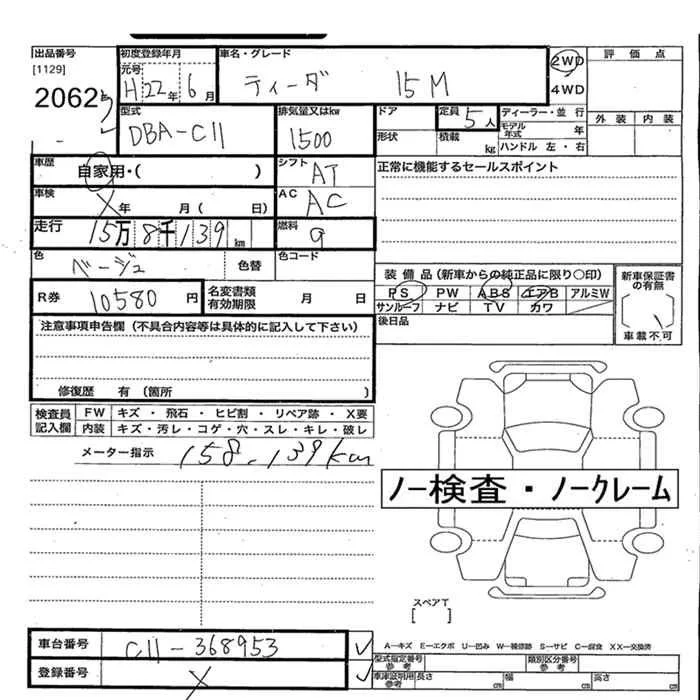 出品番号 初度登録年月 車名・グレード 2WD 評価点
[1129] 元号 H22年 6月 ティーダ 15M 4WD
2062 型式 排気量又はkw ドア 定員 5人 ディーラー・並行 外装 内装
DBA-C11 1500 形状 積載 kg モデル年式 年
ハンドル 左・右
車歴 自家用・( ) シフト AT 正常に機能するセールスポイント
車検 X年 月( 日) AC AC
走行 15万8千139km 燃料 g
色 ベージュ 色替 色コード 装備品(新車からの純正品に限り〇印) 新車保証書の有無
R券 10580円 名変書類有効期限 月 日 PS PW ABS エアB アルミW
サンルーフ ナビ TV カワ 車載不可
注意事項申告欄(不具合内容等は具体的に記入して下さい) 後日品
修復歴 有(箇所 )
検査員記入欄 FW キズ・飛石・ヒビ割・リペア跡・X要
内装 キズ・汚レ・コゲ・穴・スレ・キレ・破レ
メーター指示 158.139km
ノー検査・ノークレーム
スペアT
[ ]
車台番号 C11-368953 A-キズ E-エクボ U-凹み W-補修跡 S-サビ C-腐食 XX-交換済
登録番号 X 型式指定番号参考 類別区分番号参考
車庫証明用参考 長さ cm 幅 cm 高さ cm